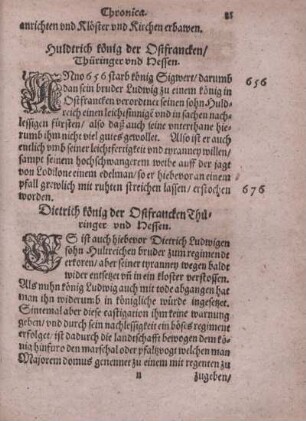 Chronica. 81
anrichten vnd Klöster vnd Kirchen erbawen.
Huldrich könig der Ostfrancken/
Thüringer vnd Hessen.
ANno 656 starb könig Sigwert/ darumb 656
dan sein bruder Ludwig zu einem könig in
Ostfrancken verordenet seinen sohn Huld-
reich einen leichtsinnigẽ vnd in sachen nach-
lessigen fürsten/ also daß auch seine vnterthane hie-
rumb ihm nicht viel gutes gewollet. Also ist er auch
entlich vmb seiner leichfertigkeit vnd tyranney willen/
sampt seinem hochschwangerem weibe auff der jagt
von Lodilone einem edelman/ so er hiebevor an einem
pfall grewlich mit ruhten streichen lassen/ erstochen
worden. 676
Dietrich könig der Ostfrancken Thü-
ringer vnd Hessen.
ES ist auch hiebevor Dieterich Ludwigen
sohn Hulreichen bruder zum regimende
erkoren/ aber seiner tyranney wegen baldt
wider entsetzet vñ in ein kloster verstossen.
Als nuhn könig Ludwig auch mit tode abgangen hat
man ihn widerumb in königliche würde ingesetzet.
Sintemal aber diese castigation ihm keine warnung
geben/ vnd durch sein nachlessigkeit ein böses regiment
erfolget/ ist dadurch die landschafft bewogen dem kö-
nig hinfuro den marschal oder pfaltzvogt welchen man
Majorem domus gennenet zu einem mit regenten zu
ll zugeben/